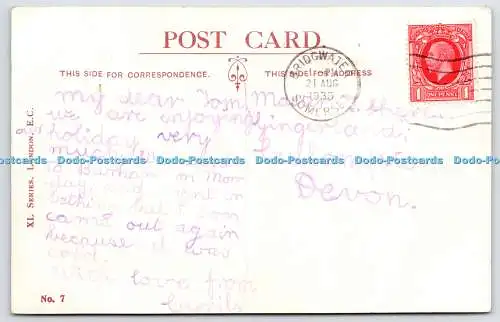 POST CARD.
THIS SIDE FOR CORRESPONDENCE.
THIS SIDE FOR ADDRESS
BRIDGWATER
21 AUG
1935
SOMERSET
ONE PENNY
XL SERIES, LONDON, E.C.
my dear Tom
we are enjoying
holiday very
much
to Burnham on Mon
day, and went in
bathing but I soon
came out again
because it was
cold.
with love from
Devon.
Dodo-Postcards Dodo-Postcards Dodo-Postcards Dodo-Postcards Dodo-Postcards
No. 7